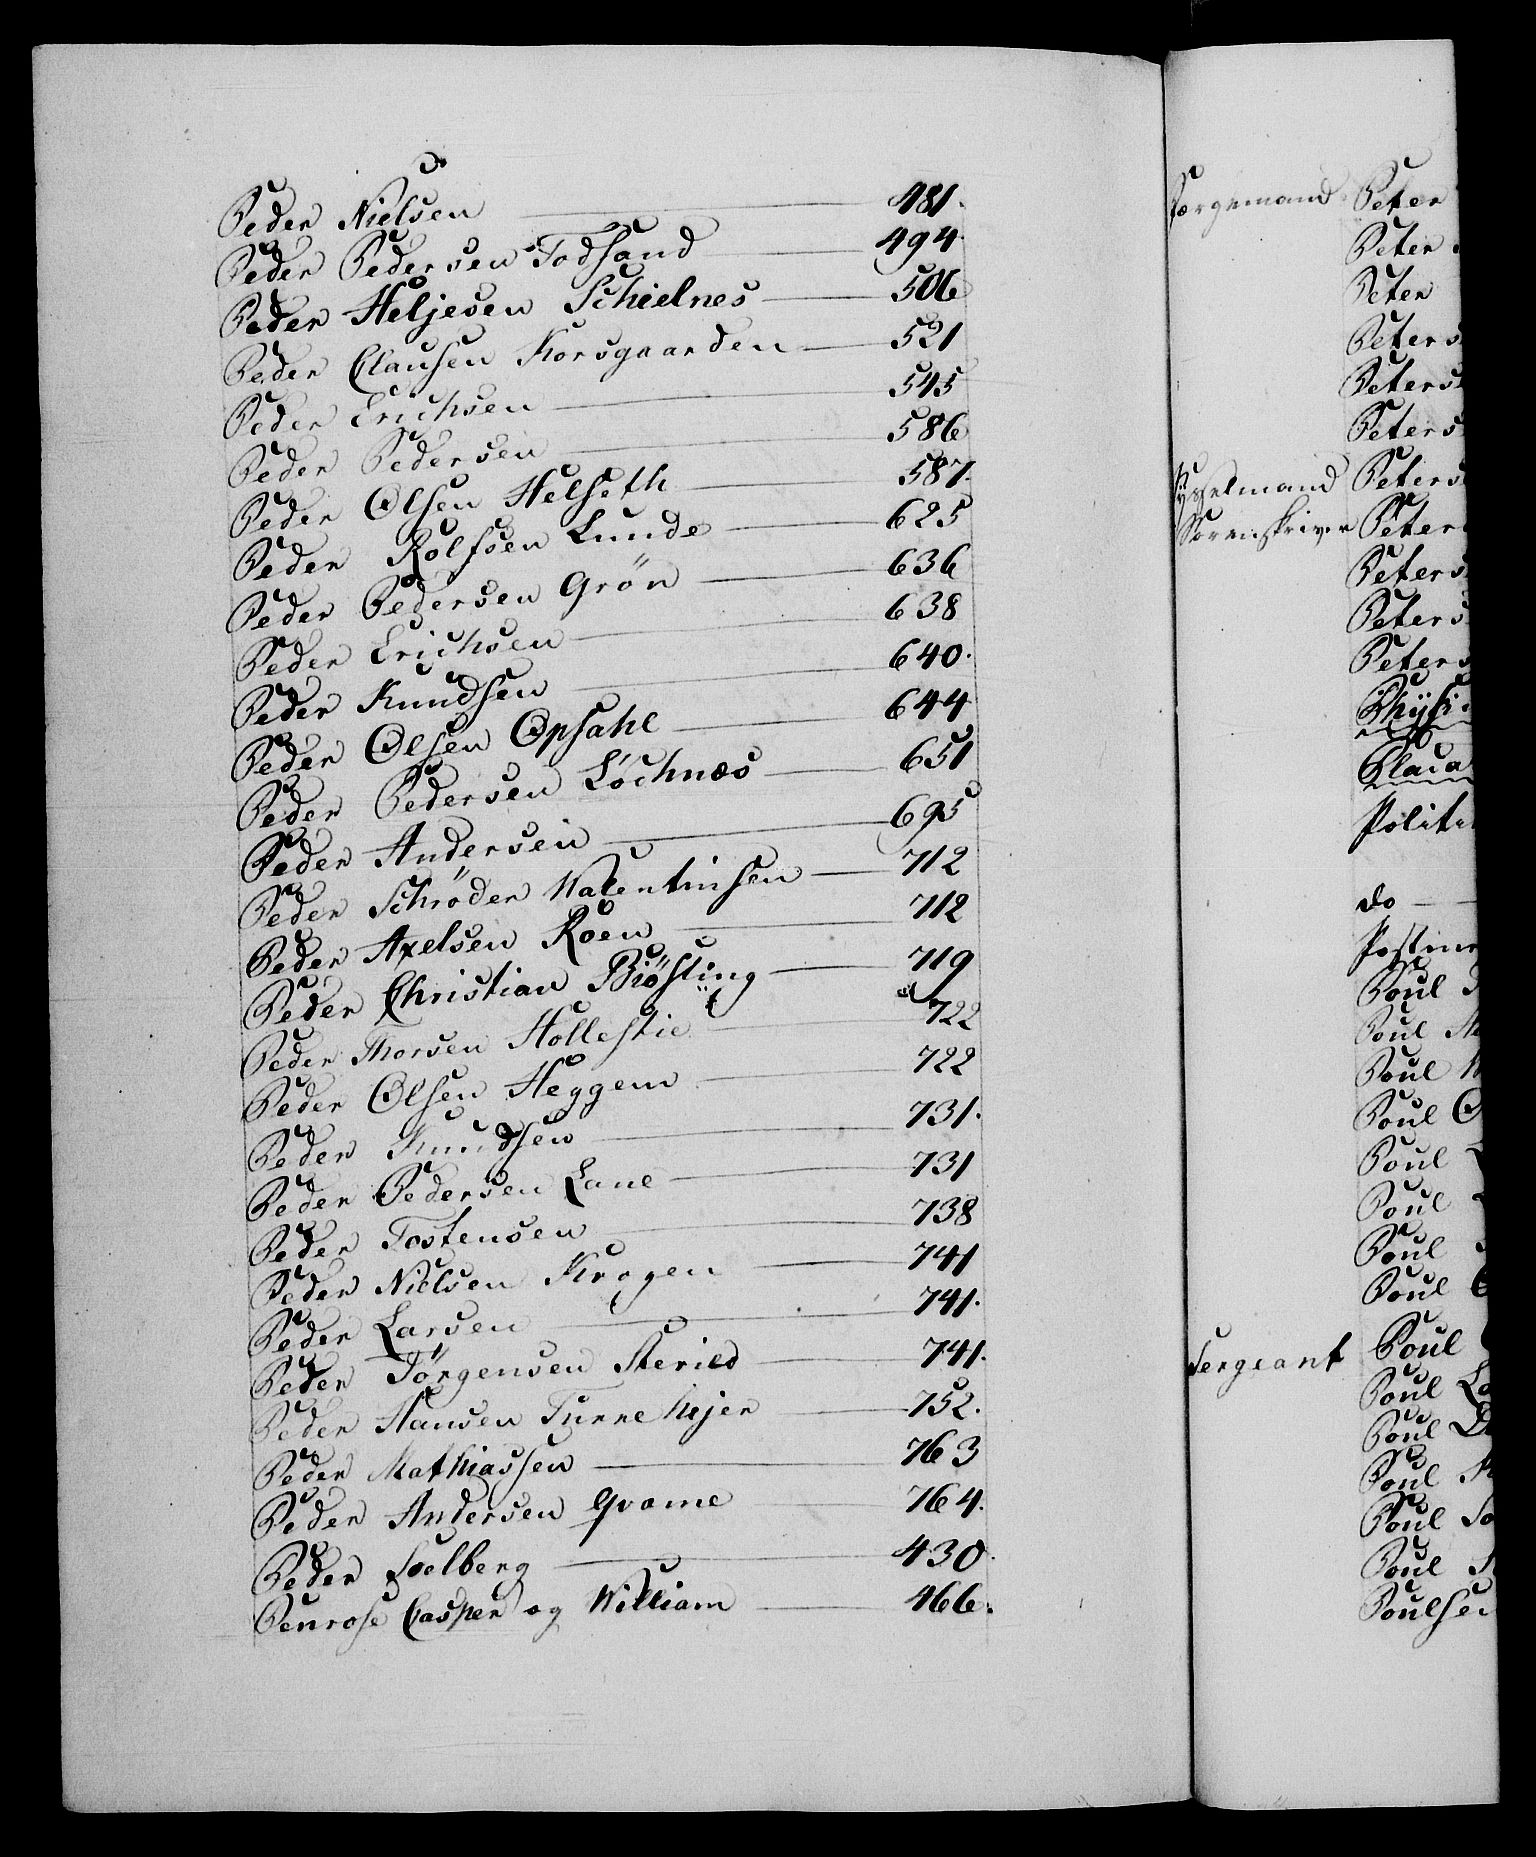 Peder Nielsen 481.
Peder Pedersen Todsand 494.
Peder Heljesen Schielnes 506
Peder Clausen Korsgaarden 521
Peder Erichsen 545
Peder Pedersen 586
Peder Olsen Helseth 587.
Peder Rolfsen Lunde 625
Peder Pedersen Grön 636
Peder Erichsen 638
Peder Knudsen 640.
Peder Olsen Opsahl 644
Peder Pedersen Löchnæs 651
Peder Andersen 695
Peder Schröder Walentinsen 712
Peder Axelsen Roen 712
Peder Christian Biösting 719
Peder Thorsen Hollestie 722
Peder Olsen Heggem 722
Peder Knudsen 731.
Peder Pedersen Lane 731
Peder Tostensen 738
Peder Nielsen Krogen 741
Peder Larsen 741.
Peder Jörgensen 741.
Peder Hansen 752.
Peder Mathiassen 763
Peder Andersen Qvame 764.
Peder Soelberg 430.
Penrose Casper og William 466.
Færgemand Peter
Peter
Peter
Peters
Peters
Peters
Sysselmand Peters
Sorenskriver Peter
Peters
Peters
Peters
Physi
Placa
Politi
do
Postme
Poul
Poul
Poul
Poul
Poul
Poul
Poul
Poul
Sergeant Poul
Poul
Poul
Poul
Poul
Poul
Poulsen